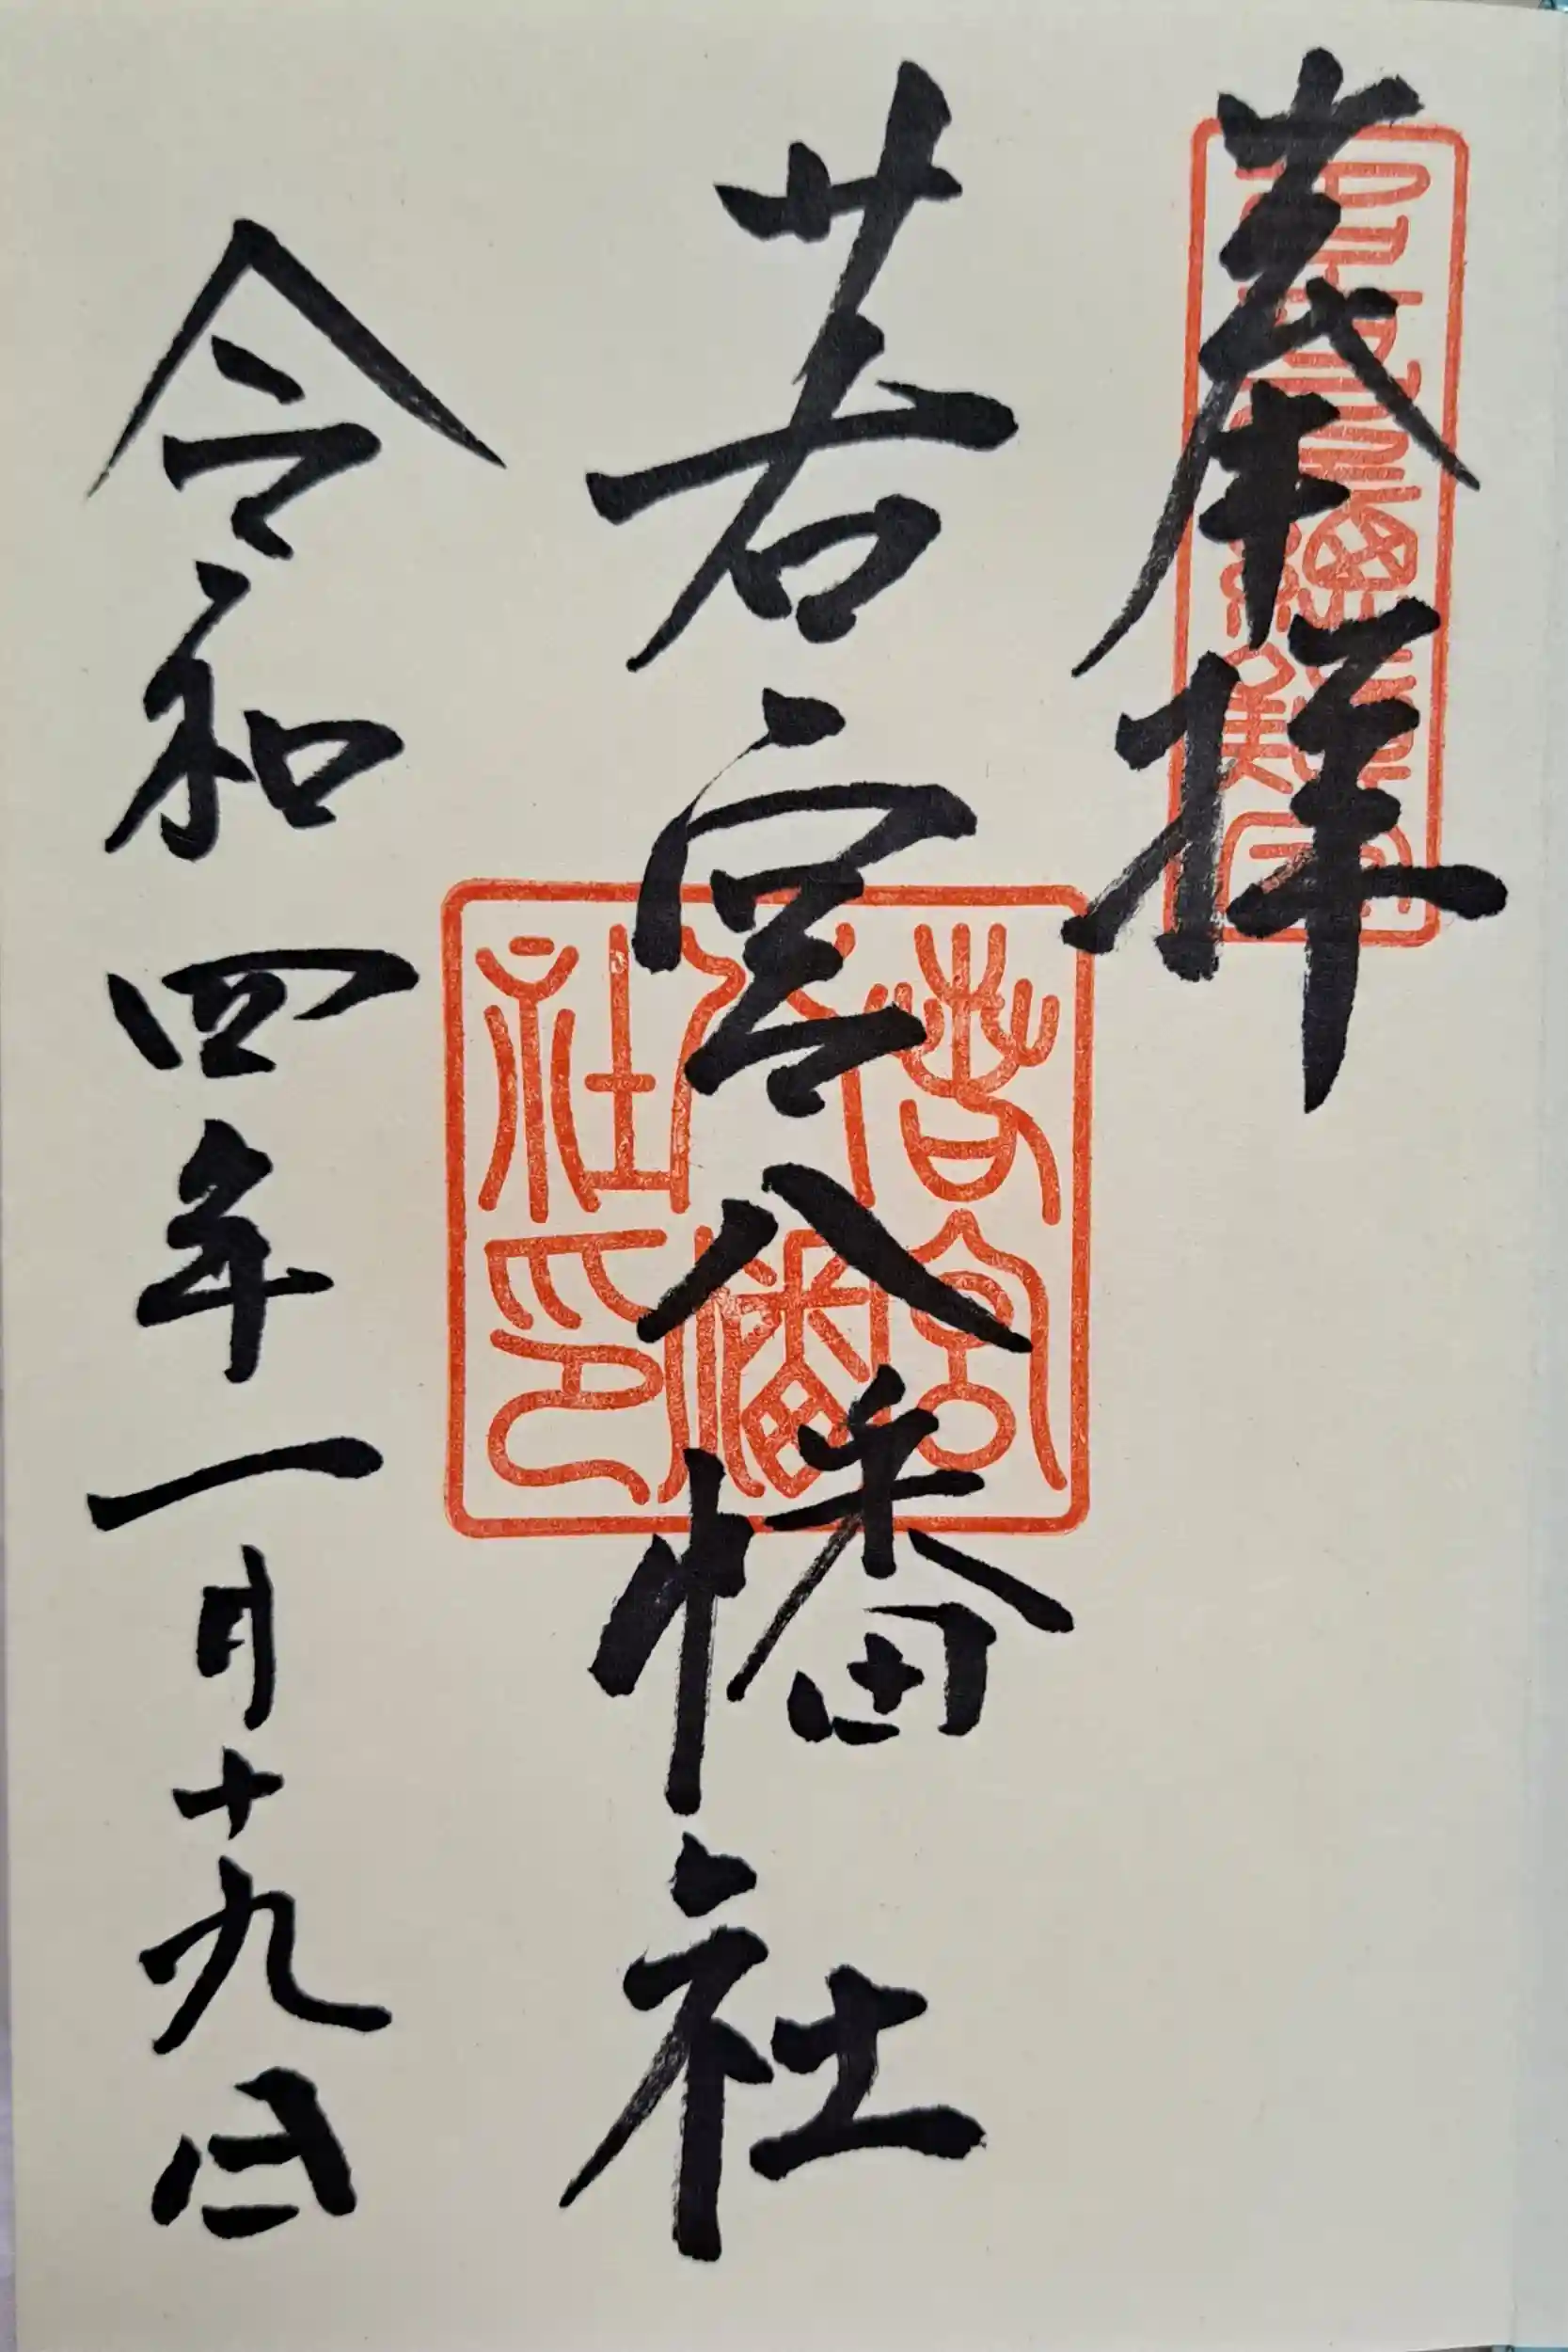 奉拝
若宮八幡社
令和四年一月十九日
若宮
八幡
社印